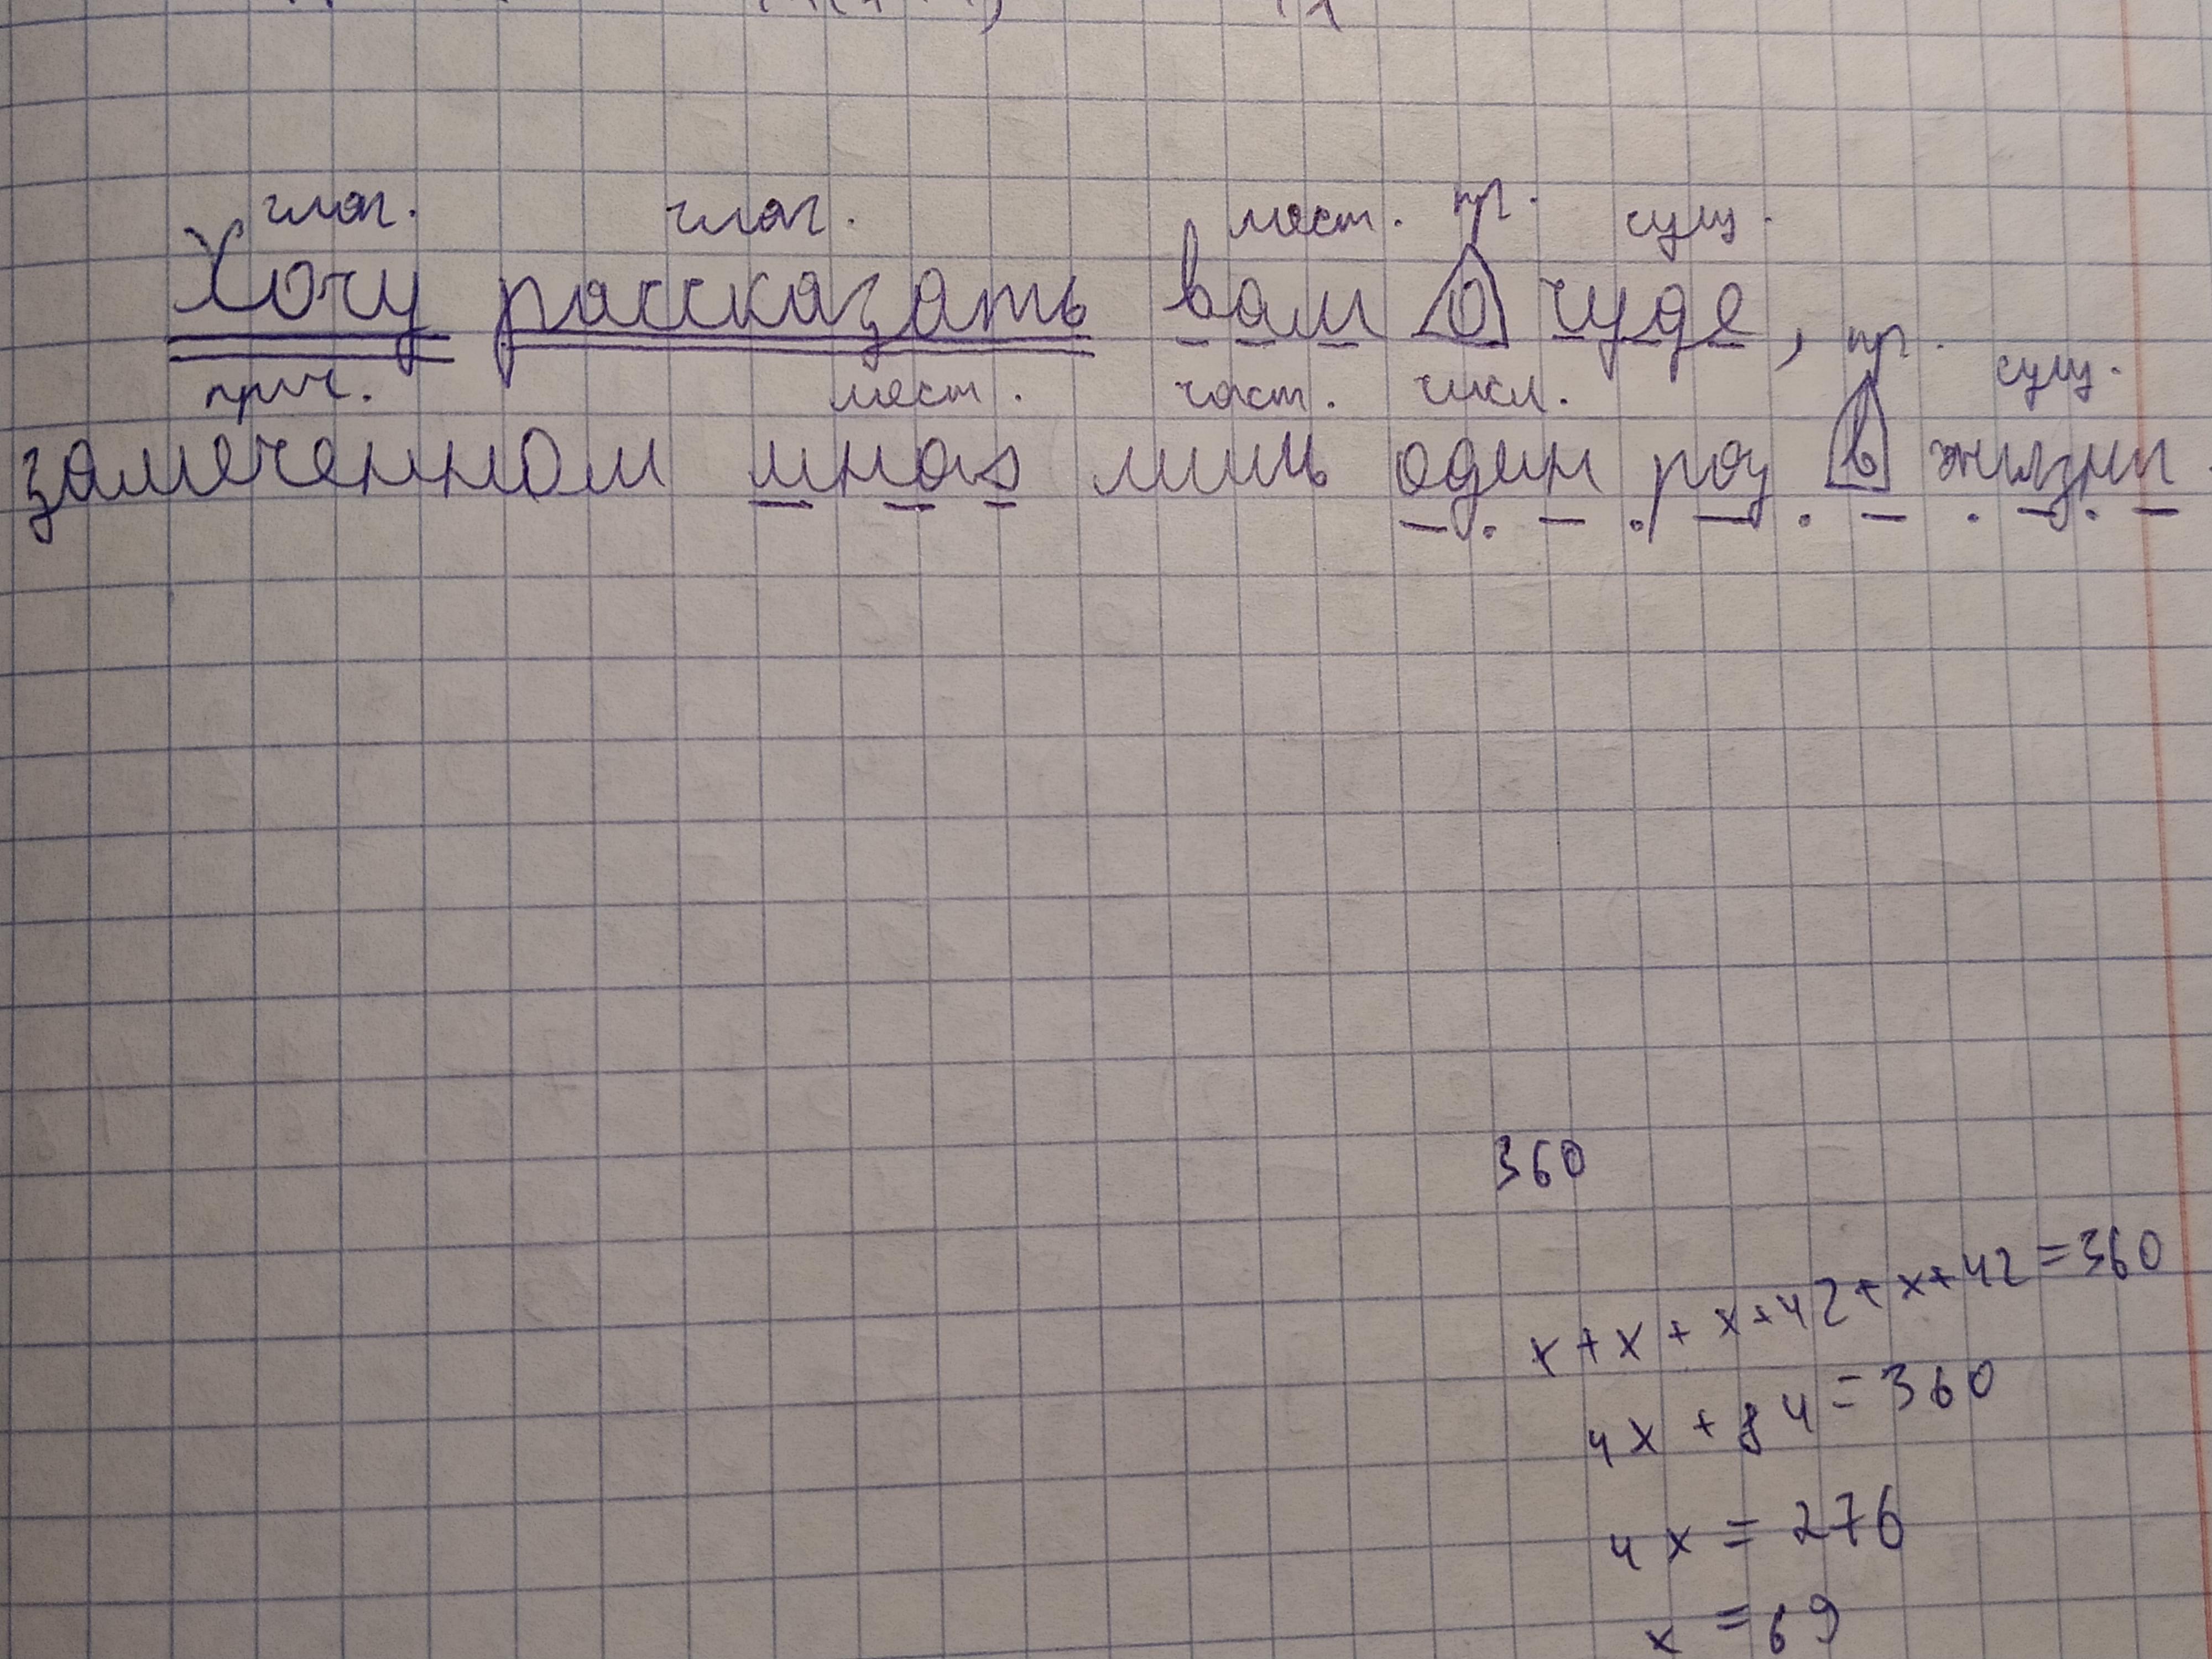 глаг. глаг. мест. пр. сущ.
Хочу рассказать вам о чуде,
прич. мест. част. числ. пр. сущ.
замеченном мной лишь один раз в жизни.
360
x+x+x+42+x+42=360
4x+84=360
4x=276
x=69